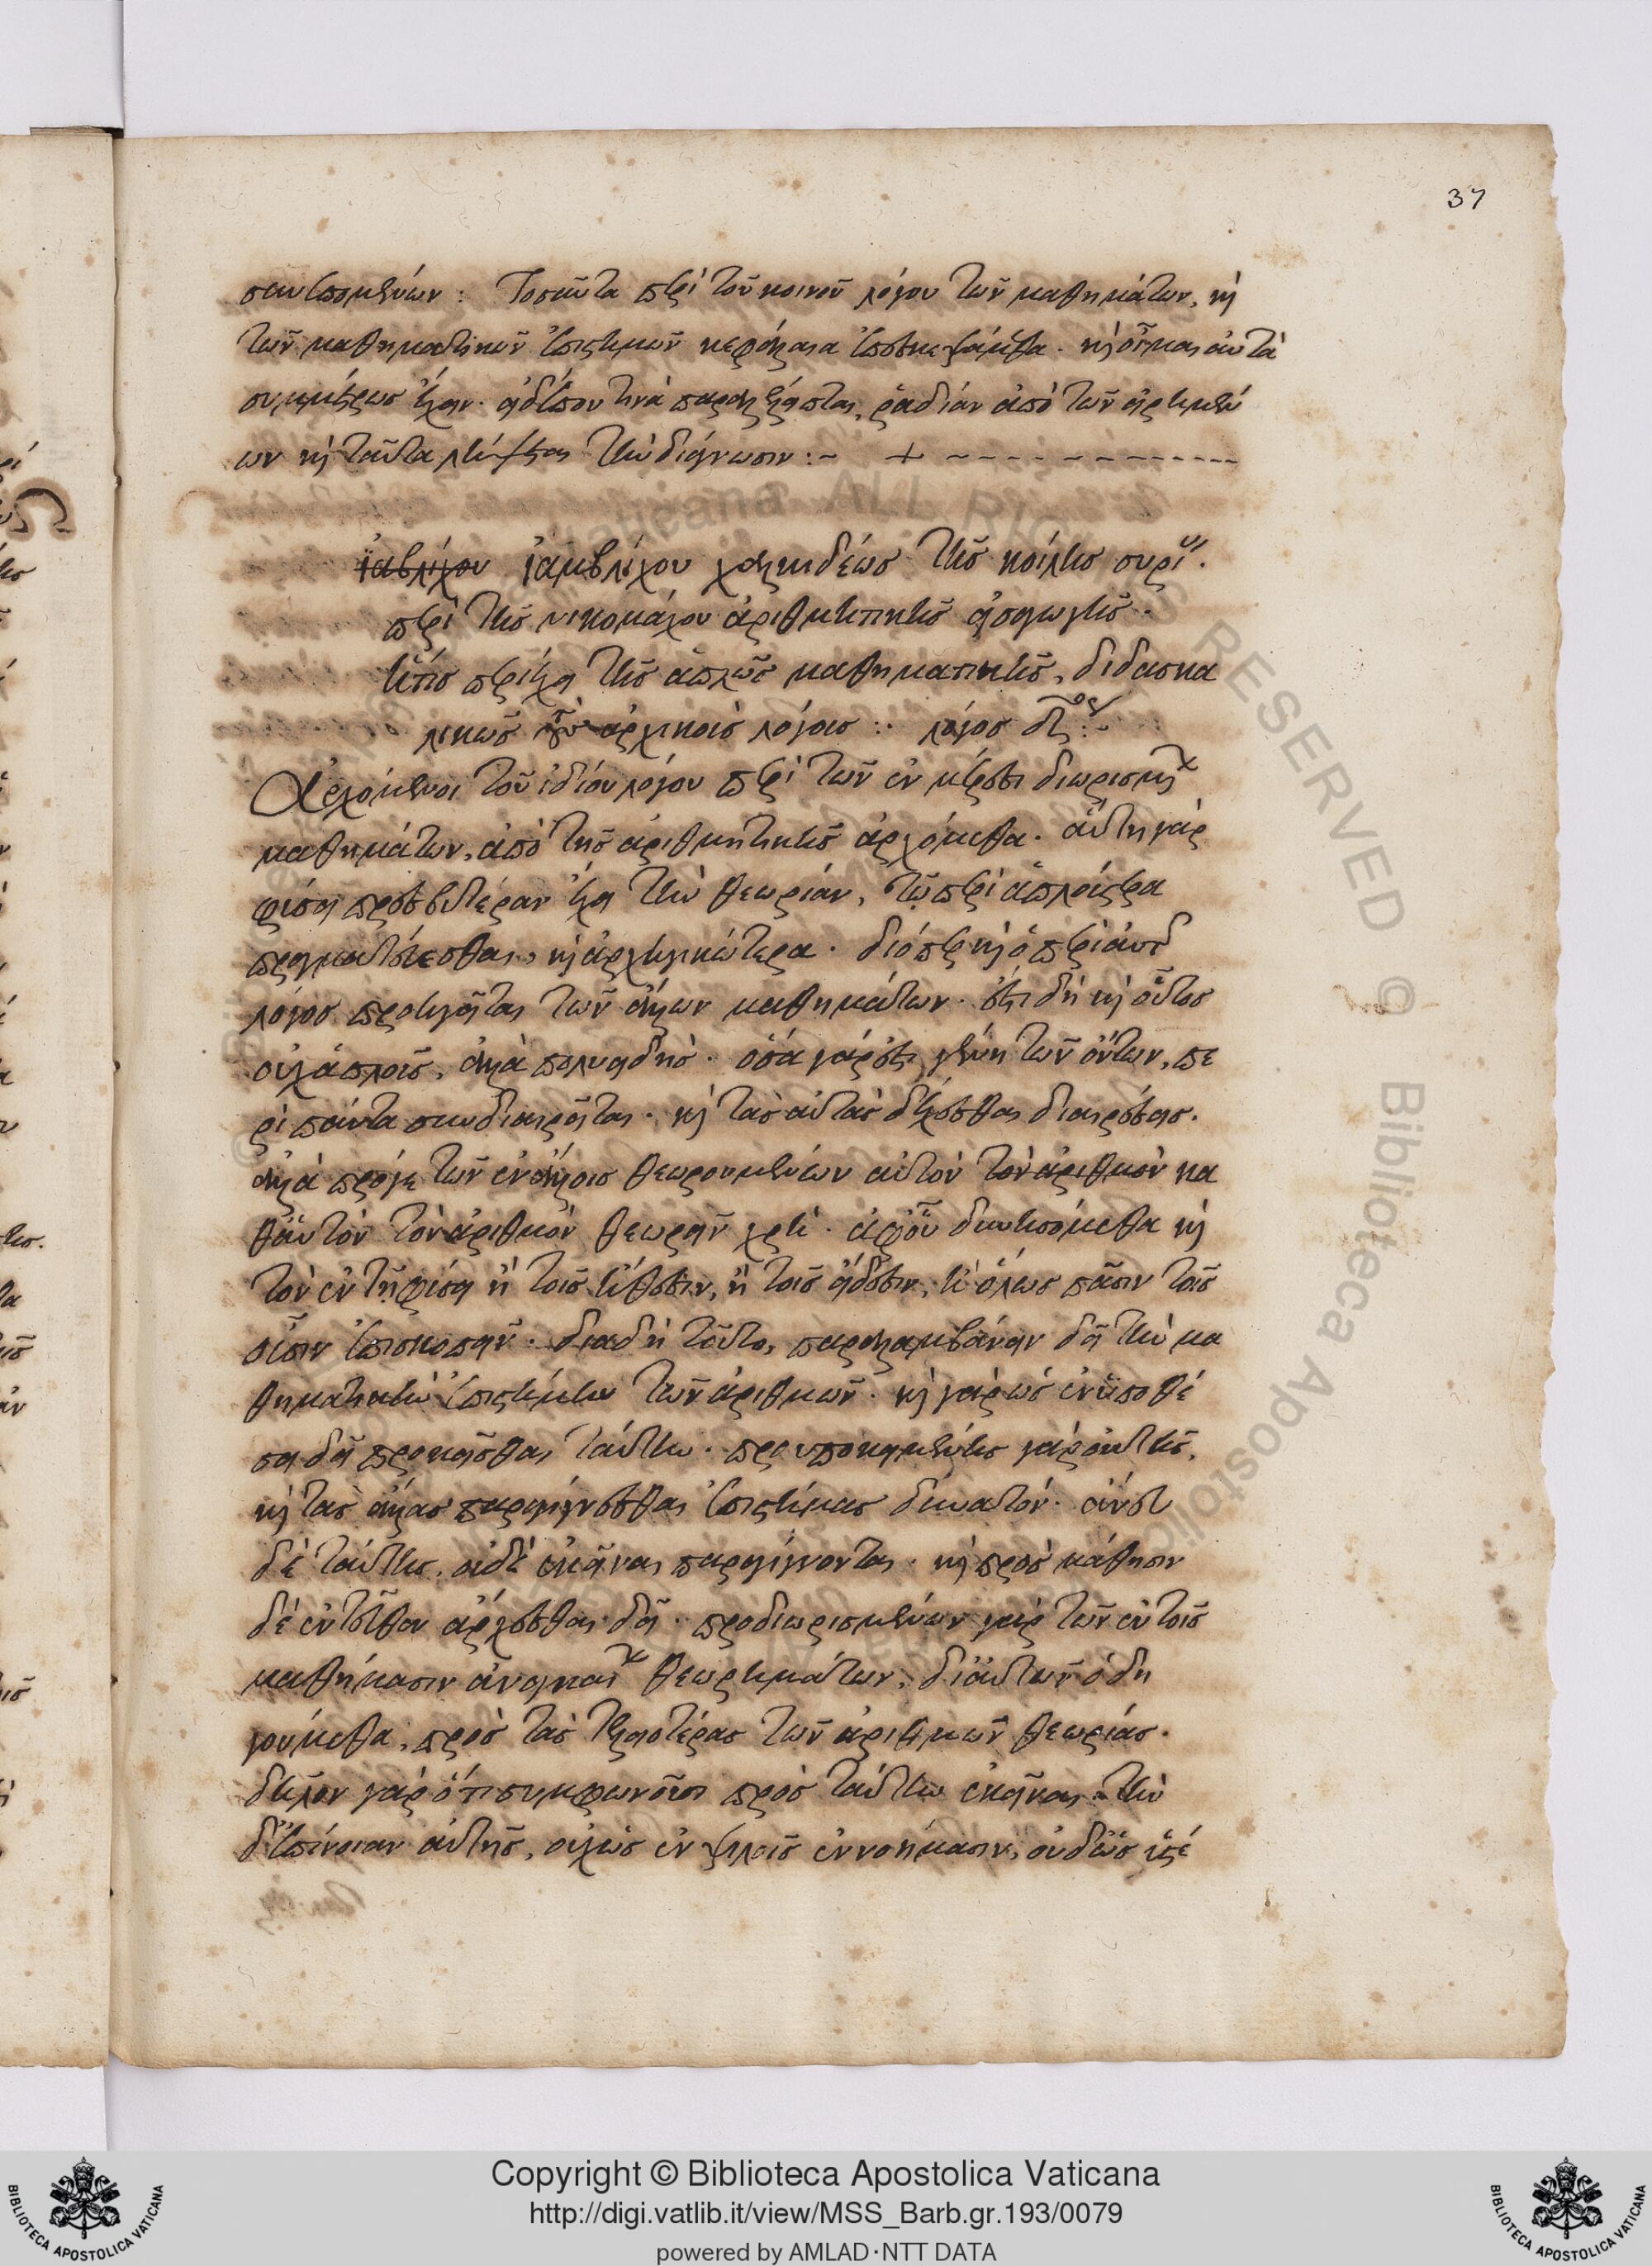 37
συνεπομένων : Τοσαῦτα περὶ τοῦ κοινοῦ λόγου τῶν μαθημάτων, καὶ
τῶν μαθηματικῶν ἐπιστημῶν κεφάλαια ἐπεσκεψάμεθα. καὶ οἶμαι αὐτὰ
συμμέτρως ἔχειν. εἰ δέ που τινὰ παραλέλειπται, ῥαδίαν ἀπὸ τῶν εἰρημέν
ων καὶ ταῦτα λήψεται τὴν διάγνωσιν :~ +
ἰαβλίχου ἰαμβλίχου χαλκιδέως τῆς κοίλης συρί
περὶ τῆς νικομάχου ἀριθμητικῆς εἰσαγωγῆς.
ἥτις περιέχει τῆς ἁπλῶς μαθηματικῆς, διδασκα
λικῶς ἀρχικοῖς λόγοις : λόγος
Ἀρχόμενοι τοῦ ἰδίου λόγου περὶ τῶν ἐν μέρει διωρισμέν
μαθημάτων, ἀπὸ τῆς ἀριθμητικῆς ἀρχόμεθα. αὕτη γὰρ
φύσει πρεσβυτέραν ἔχει τὴν θεωρίαν, τῷ περὶ ἁπλούστερα
πραγματεύεσθαι, καὶ ἀρχηγικώτερα. διόπερ καὶ ὁ περὶ αὐτ
λόγος προηγεῖται τῶν ἄλλων μαθημάτων. ἔστι δὴ καὶ οὗτος
οὐχ ἁπλοῦς, ἀλλὰ πολυειδὴς. ὅσα γάρ ἐστι γένη τῶν ὄντων, πε
ρὶ πάντα συνδιαιρεῖται. καὶ τὰς αὐτὰς δέχεσθαι διαιρέσεις.
ἀλλὰ πρόγε τῶν ἐν ἄλλοις θεωρουμένων αὐτὸν τὸν ἀριθμὸν κα
θ᾽ αὑτὸν τὸν ἀριθμὸν θεωρεῖν χρή. ἀφ᾽ οὗ δυνησόμεθα καὶ
τὸν ἐν τῇ φύσει ἢ τοῖς ἤθεσιν, ἢ τοῖς εἴδεσιν, ἢ ὅλως πᾶσιν τοῖς
οὖσιν ἐπισκοπεῖν. διὰ δὴ τοῦτο, παραλαμβάνειν δεῖ τὴν μα
θηματικὴν ἐπιστήμην τῶν ἀριθμῶν. καὶ γὰρ ὡς ἐν ὑποθέ
σει δεῖ προκεῖσθαι ταύτην. προυποκειμένης γὰρ αὐτῆς,
καὶ τὰς ἄλλας παραγίγνεσθαι ἐπιστήμας δυνατόν. ἄνευ
δὲ ταύτης, οὐδὲ ἐκεῖναι παραγίγνονται. καὶ πρὸς μάθησιν
δὲ ἐντεῦθεν ἄρχεσθαι δεῖ. προδιωρισμένων γὰρ τῶν ἐν τοῖς
μαθήμασιν ἀναγκαί θεωρημάτων, δι᾽ αὐτῶν ὁδη
γούμεθα, πρὸς τὰς τελειοτέρας τῶν ἀριθμῶν θεωρίας.
δῆλον γὰρ ὅτι συμφωνοῦσι πρὸς ταύτην ἐκεῖναι. τὴν
δ᾽ ἐπίνοιαν αὐτῆς, οὐχ ὡς ἐν ψιλοῖς ἐννοήμασιν, οὐδ᾽ ὡς ὑσέ
Copyright © Biblioteca Apostolica Vaticana
http://digi.vatlib.it/view/MSS_Barb.gr.193/0079
powered by AMLAD·NTT DATA